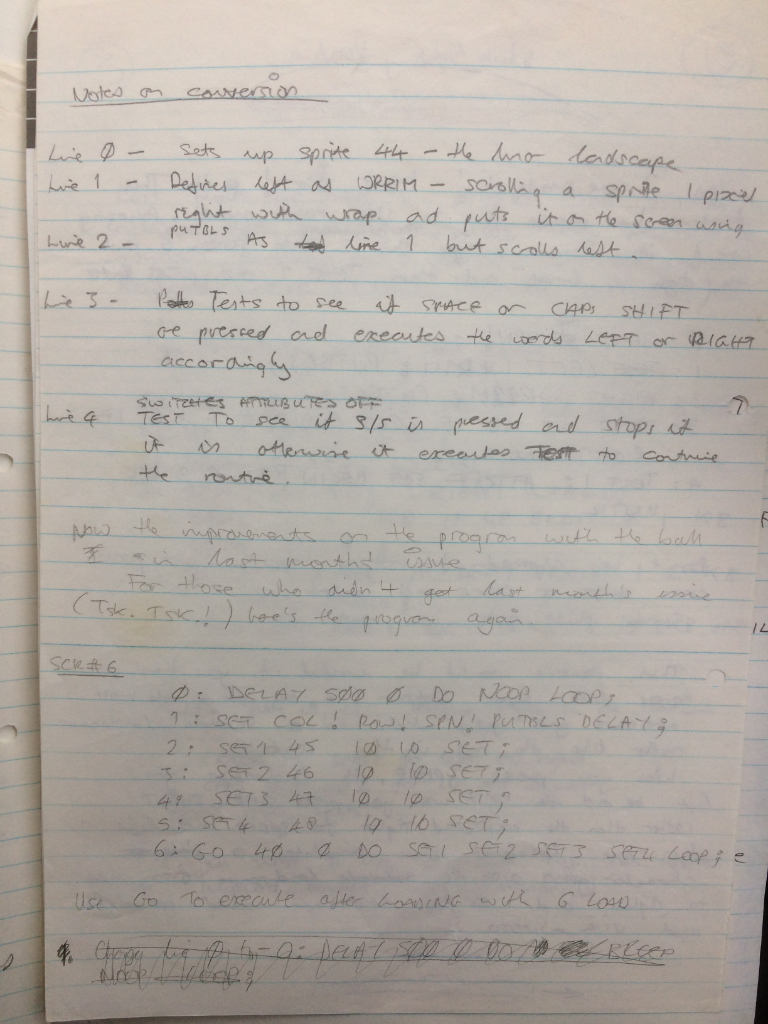 Notes on conversion
Line 0 - Sets up sprite 44 - the lunar landscape
Line 1 - Defines left as WRRIM - scrolling a sprite 1 pixel
right with wrap and puts it on the screen using
PUTBLS
Line 2 - As line 1 but scrolls left.
Line 3 - Tests to see if SPACE or CAPS SHIFT
are pressed and executes the words LEFT or RIGHT
accordingly
SWITCHES ATTRIBUTES OFF
Line 4 TEST To see if S/S is pressed and stops if
it is otherwise it executes TEST to continue
the routine.
Now the improvements on the program with the ball
in last months' issue
For those who didn't get last month's issue
(Tsk. Tsk.!) here's the program again.
SCR#6
0: DELAY 500 0 DO NOOP LOOP;
1: SET COL! ROW! SPN! PUTBLS DELAY;
2: SET1 45 10 10 SET;
3: SET2 46 10 10 SET;
4: SET3 47 10 10 SET;
5: SET4 48 10 10 SET;
6: GO 40 0 DO SET1 SET2 SET3 SET4 LOOP;
Use GO To execute after LOADING with 6 LOAD
Change line 0 to - 0: DELAY 500 0 DO BLEEP
NOOP LOOP;